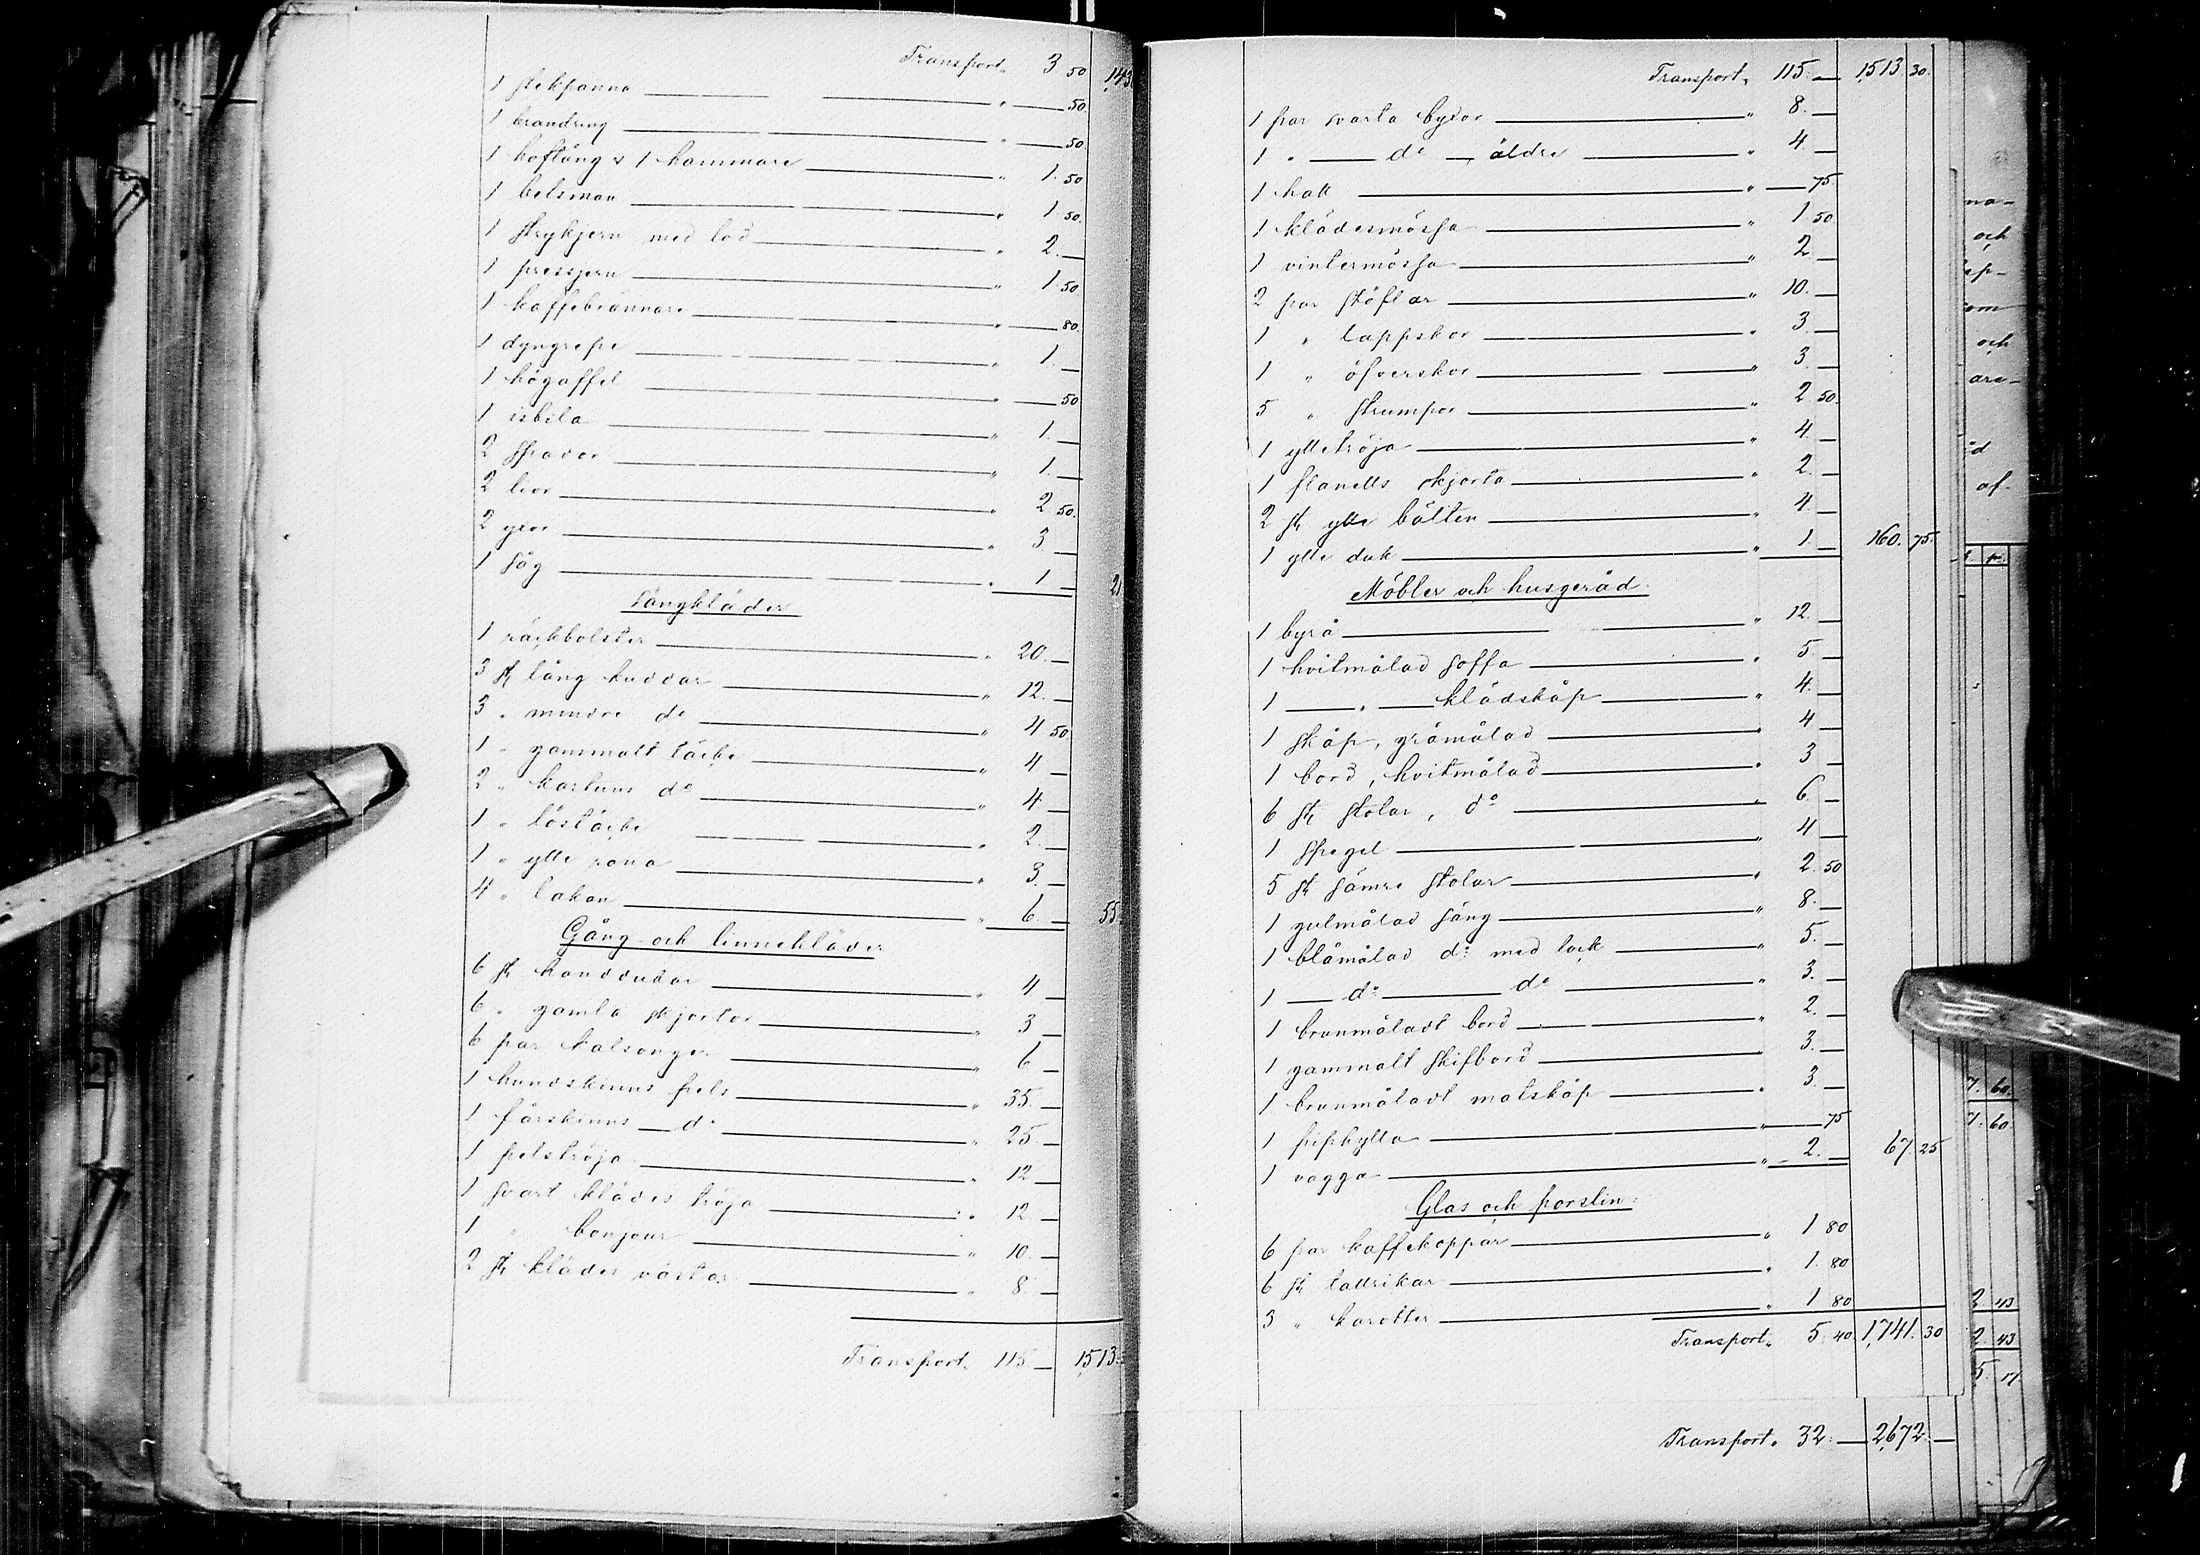 Transport„ 3 50 143
1 stekpanna „ — 50
1 brandring „ — 50
1 hoftång & 1 hammare „ 1. 50
1 betsman „ 1 50.
1 strykjern med lod „ 2. —
1 pressjern „ 1 50
1 kaffebrännare „ — 80.
1 dyngrepe „ 1. —
1 högaffel „ — 50
1 isbila „ 1. —
2 spador „ 1. —
2 lior „ 2 50.
2 yxor „ 3 —
1 såg „ 1 — 21
Sängkläder
1 räckbolster „ 20. —
3 st lång kuddar „ 12. —
3 „ mindre do „ 4 50.
1 „ gammalt täcke „ 4 —
2 „ kartuns do „ 4 —
1 „ löstäcke „ 2. —
1 „ ylle rana „ 3. —
4 „ lakan „ 6. — 55.
Gång och linnekläder
6 st handdukar „ 4 —
6 „ gamla skjortor „ 3 —
6 par kalsonger „ 6 —
1 hundskinns pels „ 35. —
1 fårskinns do „ 25. —
1 pelströja „ 12 —
1 svart klädes tröja „ 12 —
1 „ bonjour „ 10. —
2 st klädes västar „ 8 —
Transport„ 115 — 1,513.
Transport„ 115. — 1,513 30.
1 par svarta byxor „ 8. —
1 „ — do — äldre „ 4. —
1 hatt „ — 75.
1 klädesmössa „ 1 50
1 vintermössa „ 2 —
2 par stöflar „ 10. —
1 „ lappskor „ 3. —
1 „ öfverskor „ 3. —
5 „ strumpor „ 2 50.
1 ylletröja „ 4. —
1 flanells skjorta „ 2. —
2 st ylle bälten „ 4. —
1 ylle duk „ 1. — 160. 75.
Möbler och husgeråd.
1 byrå „ 12. —
1 hvitmålad soffa „ 5 —
1 — „ — klädskåp „ 4. —
1 skåp, gråmålad „ 4 —
1 bord, hvitmålad „ 3 —
6 st stolar, do „ 6. —
1 spegel „ 4 —
5 st sämre stolar „ 2. 50
1 gulmålad säng „ 8. —
1 blåmålad do med lock „ 5. —
1 — do — do „ 3. —
1 brunmåladt bord „ 2. —
1 gammalt skifbord „ 3. —
1 brunmåladt matskåp „ 3. —
1 piphylla „ — 75
1 vagga „ 2. — 67. 25
Glas och porslin.
6 par kaffekoppar „ 1 80
6 st tallrikar „ 1. 80
3 „ karotter „ 1 80
Transport„ 5. 40 1,741. 30
Transport„ 32. — 2,672. —
na-
och
om
och
are-
af.
7. 60.
7. 60.
2 43
2. 43
5. 17.